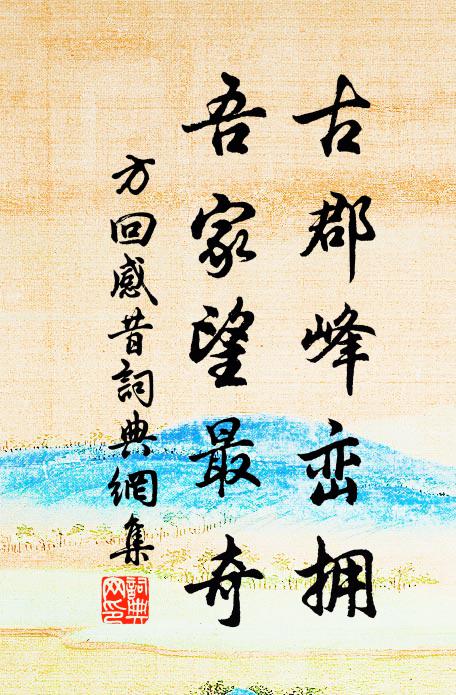 古郡峰峦拥
吾家望最奇
方回感昔詞典網集
詞典